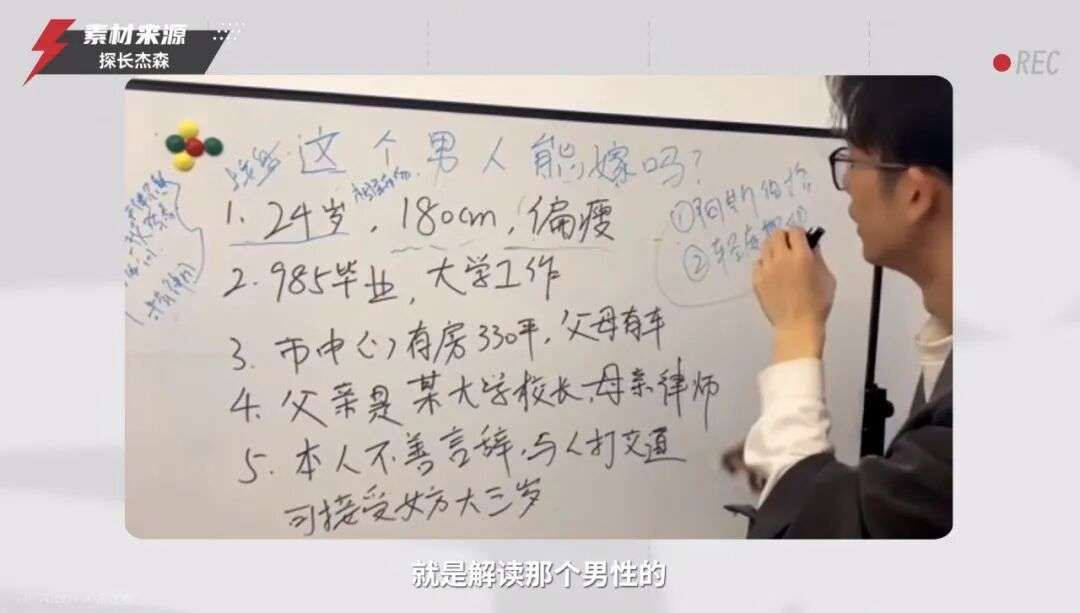 素材来源
探长杰森
REC
这个男人能嫁吗?
1. 24岁, 180cm, 偏瘦
2. 985毕业, 大学工作
3. 市中心有房330平, 父母有车
4. 父亲是某大学校长, 母亲律师
5. 本人不善言辞, 与人打交道
可接受女方大三岁
①
②
就是解读那个男性的